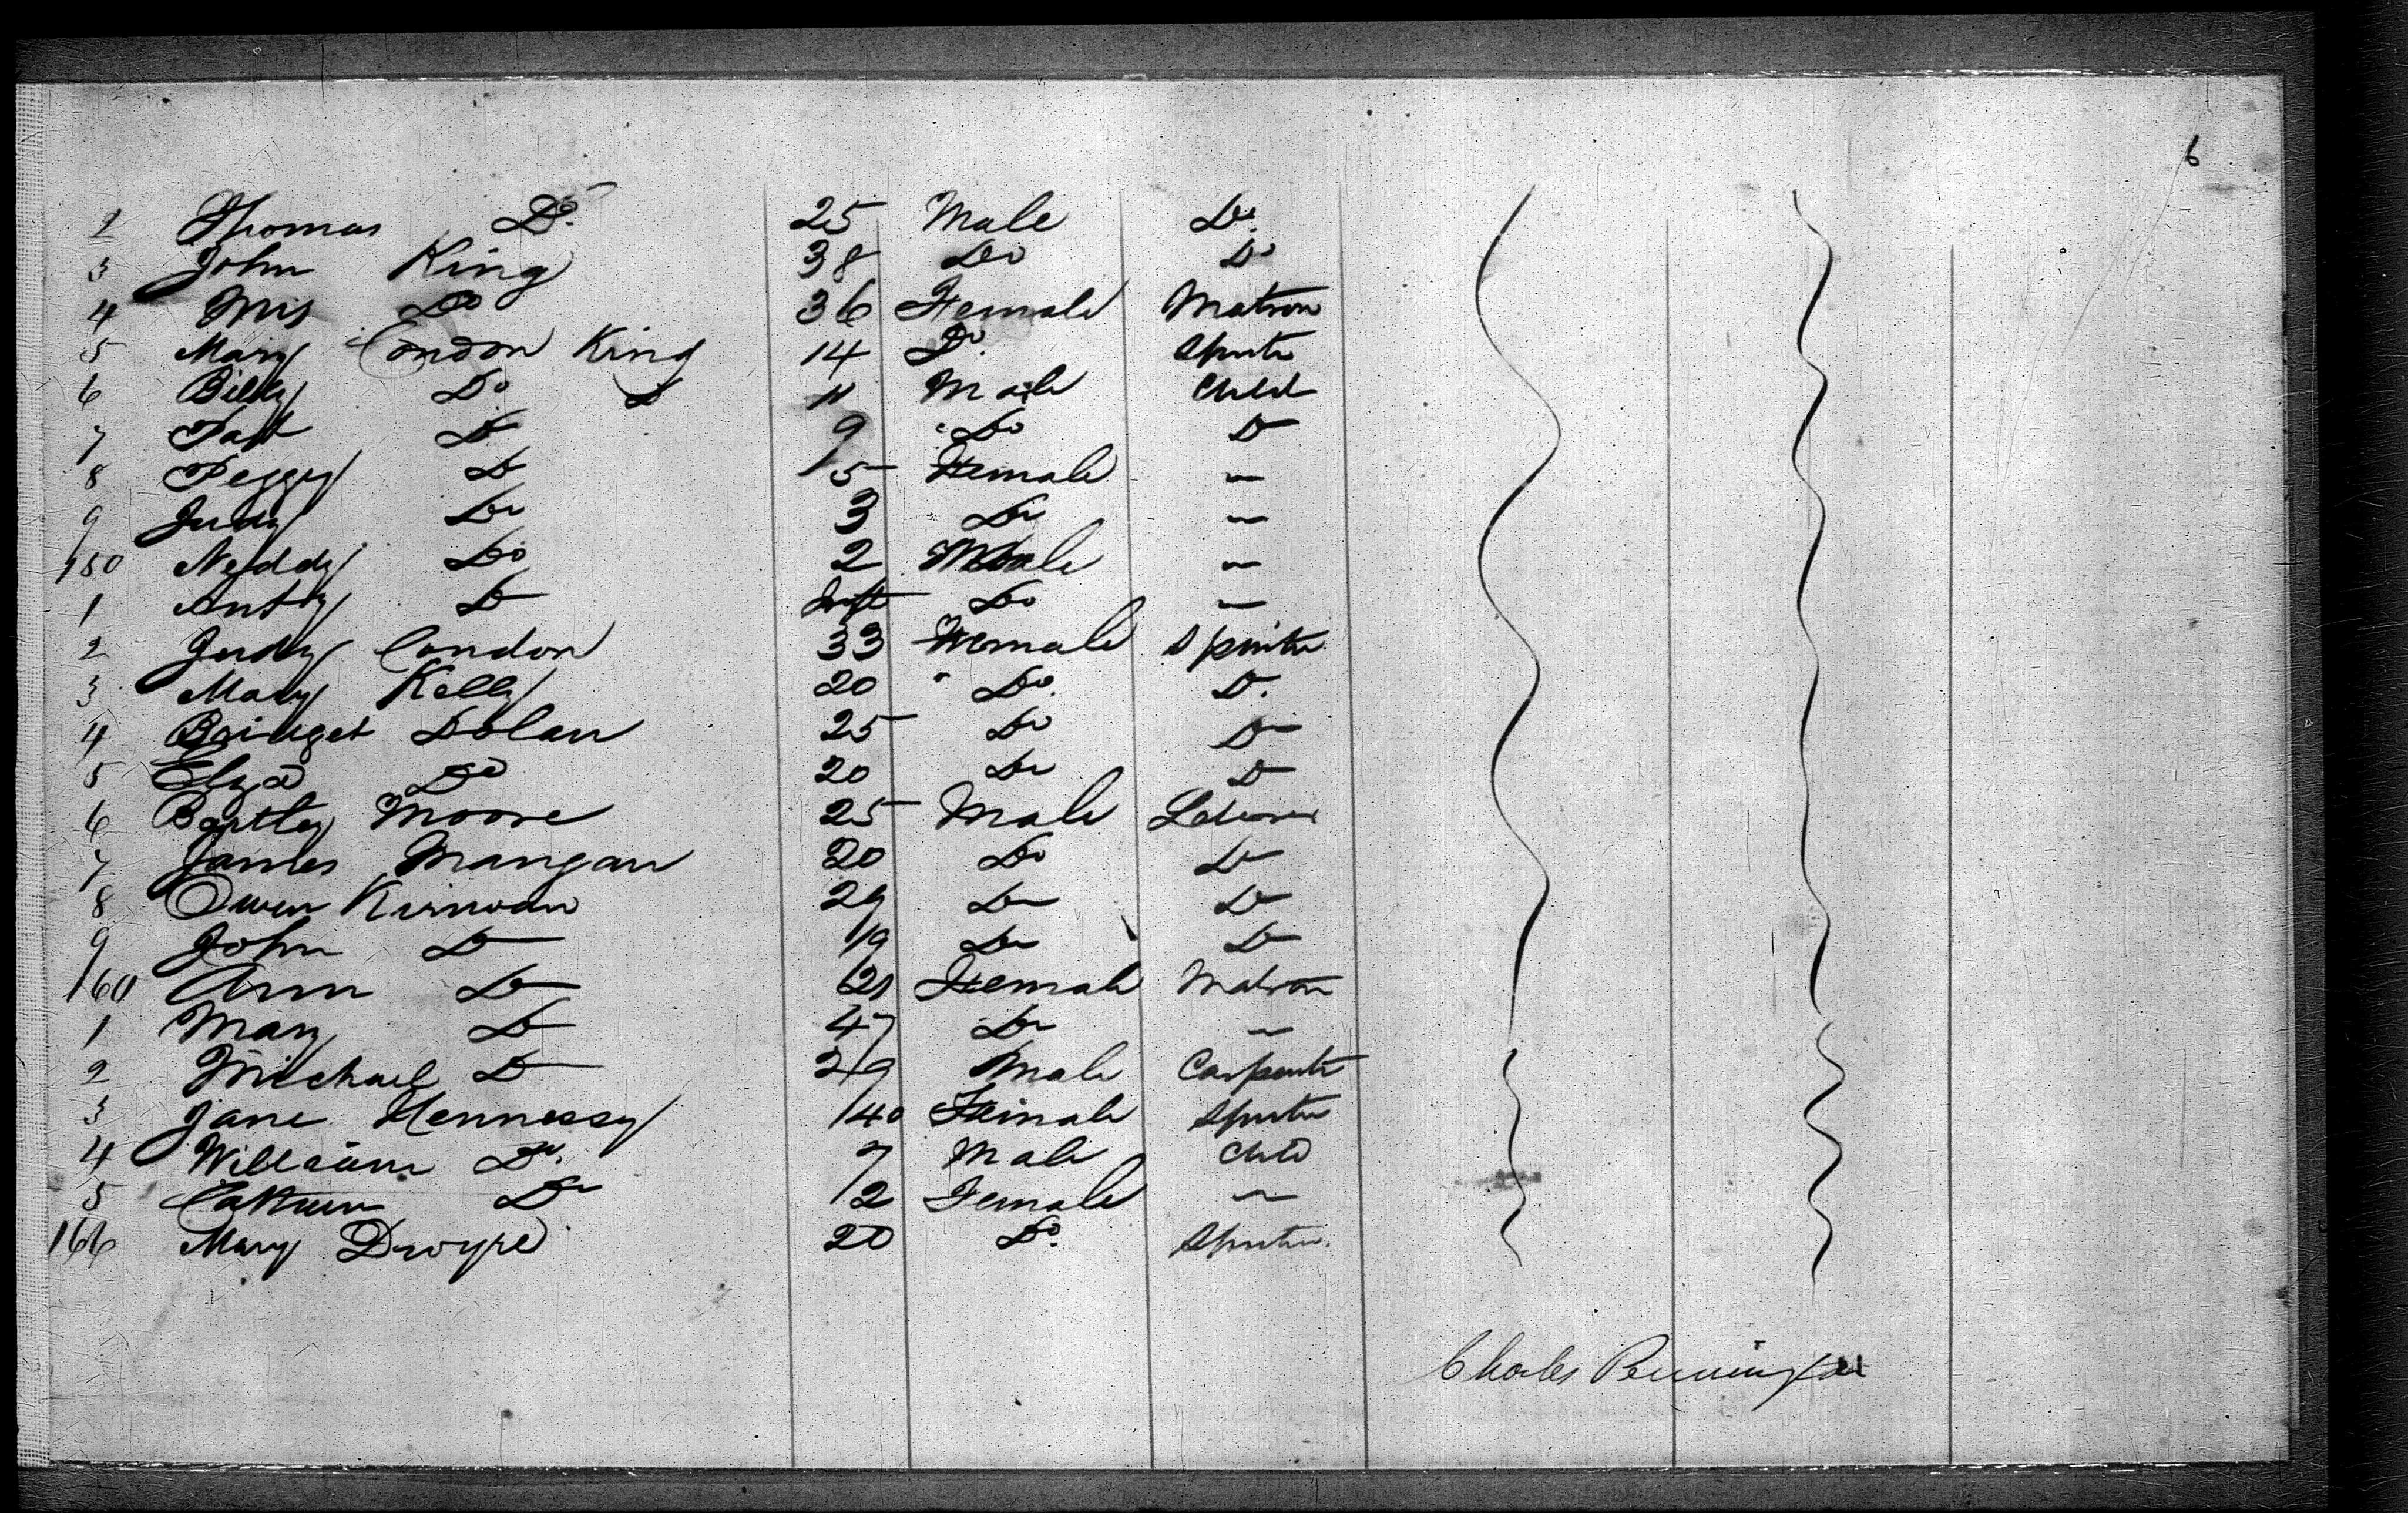 6
2 Thomas Do. 25 Male Do.
3 John King 38 Do Do
4 Mrs Do 36 Female Matron
5 Mary Condon King 14 Do. Spinster
6 Billy Do D 11 Male Child
7 Pat D 9 Do D
8 Peggy D 5 Female —
9 Judy Do 3 Do —
150 Neddy Do 2 Male —
1 Anty D Inft Do —
2 Judy Condon 33 Female Spinster
3 Mary Kelly 20 " Do. D.
4 Bridget Dolan 25 Do D
5 Eliza Do 20 Do D
6 Bartley Moore 25 Male Laborer
7 James Mangan 20 Do D
8 Owen Kirwan 29 Do D
9 John D 19 Do D
160 Ann D 21 Female Matron
1 Mary D 47 Do —
2 Michael D 29 Male Carpenter
3 Jane Hennessy 40 Female Spinster
4 William Do. 7 Male Child
5 Do 12 Female —
166 Mary Dwyre 20 Do. Spinster.
Charles Pennington